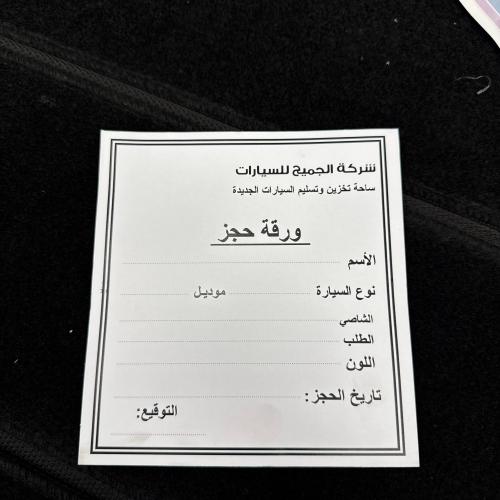 شركة الجميح للسيارات
ساحة تخزين وتسليم السيارات الجديدة
ورقة حجز
الأسم
نوع السيارة موديل
الشاصي
الطلب
اللون
تاريخ الحجز :
التوقيع: